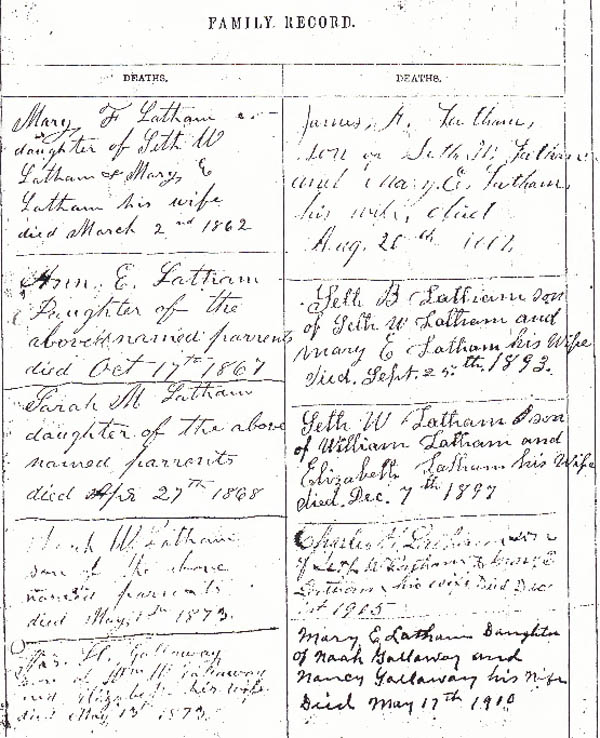 FAMILY RECORD.
DEATHS.
Mary F Latham
daughter of Seth W
Latham & Mary E
Latham his wife
died March 2nd 1862
Ann. E. Latham
Daughter of the
above named parrents
died Oct 17th 1867
Sarah M Latham
daughter of the above
named parrents
died Apr 27th 1868
W Latham
son of the above
named parrents
died May 1873.
H. Gallaway
son of Wm W Gallaway
and Elizabeth his wife
died May 13th 1873.
DEATHS.
James, A. Latham,
son of Seth W. Latham
and Mary E. Latham,
his wife, died
Aug. 20th
Seth B Latham son
of Seth W Latham and
Mary E Latham his Wife
Died. Sept. 25th, 1893.
Seth W Latham son
of William Latham and
Elizabeth Latham his Wife
died. Dec. 7th 1897
Charles Latham son
of Seth W Latham &
Latham his wife Died Dec
1st 1905
Mary E Latham Daughter
of Noah Gallaway and
Nancy Gallaway his Wife
Died May 17th 1910